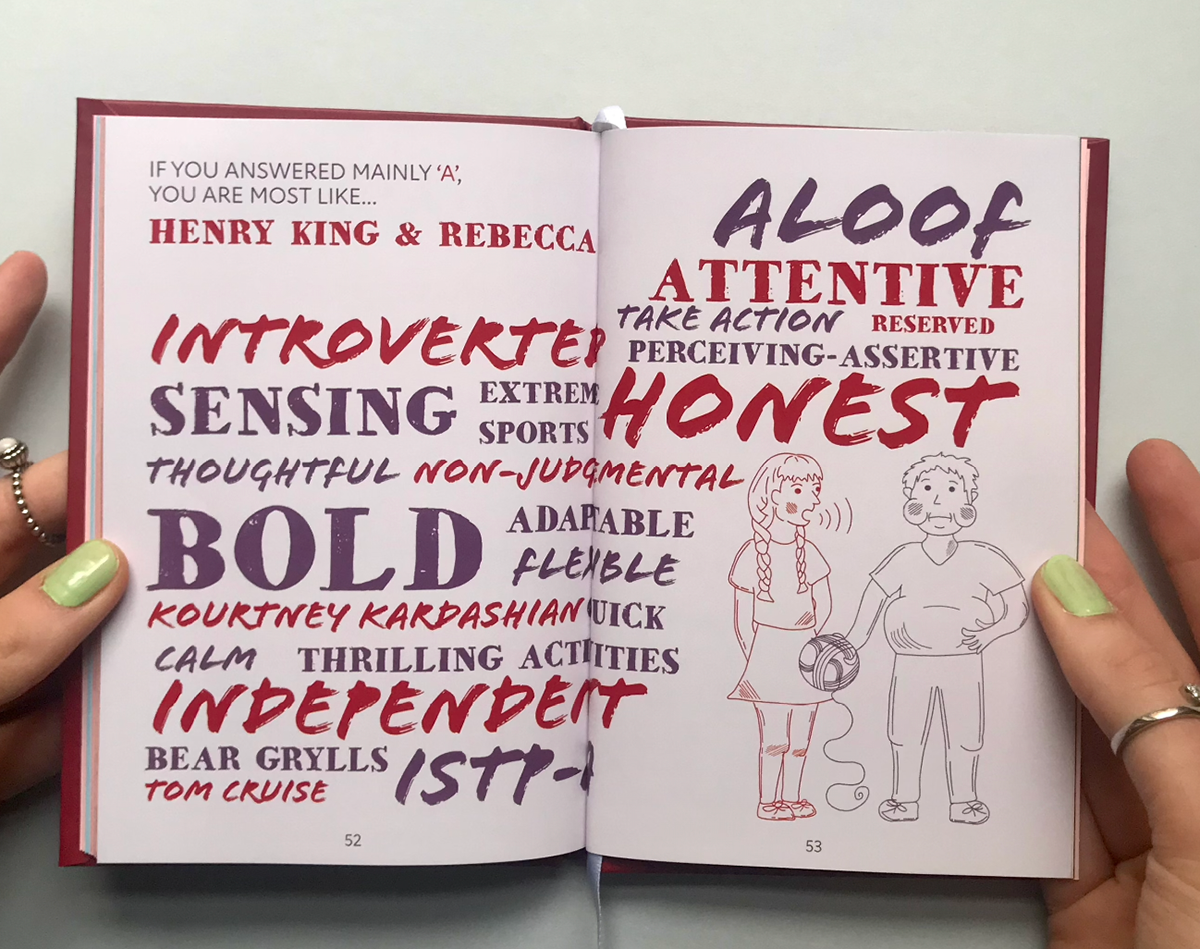 IF YOU ANSWERED MAINLY ‘A’,
YOU ARE MOST LIKE...
HENRY KING & REBECCA
INTROVERTED
SENSING
EXTREME
SPORTS
THOUGHTFUL NON-JUDGMENTAL
BOLD
ADAPTABLE
FLEXIBLE
KOURTNEY KARDASHIAN QUICK
CALM THRILLING ACTIVITIES
INDEPENDENT
BEAR GRYLLS
TOM CRUISE
ISTP-A
52
ALOOF
ATTENTIVE
TAKE ACTION RESERVED
PERCEIVING-ASSERTIVE
HONEST
53